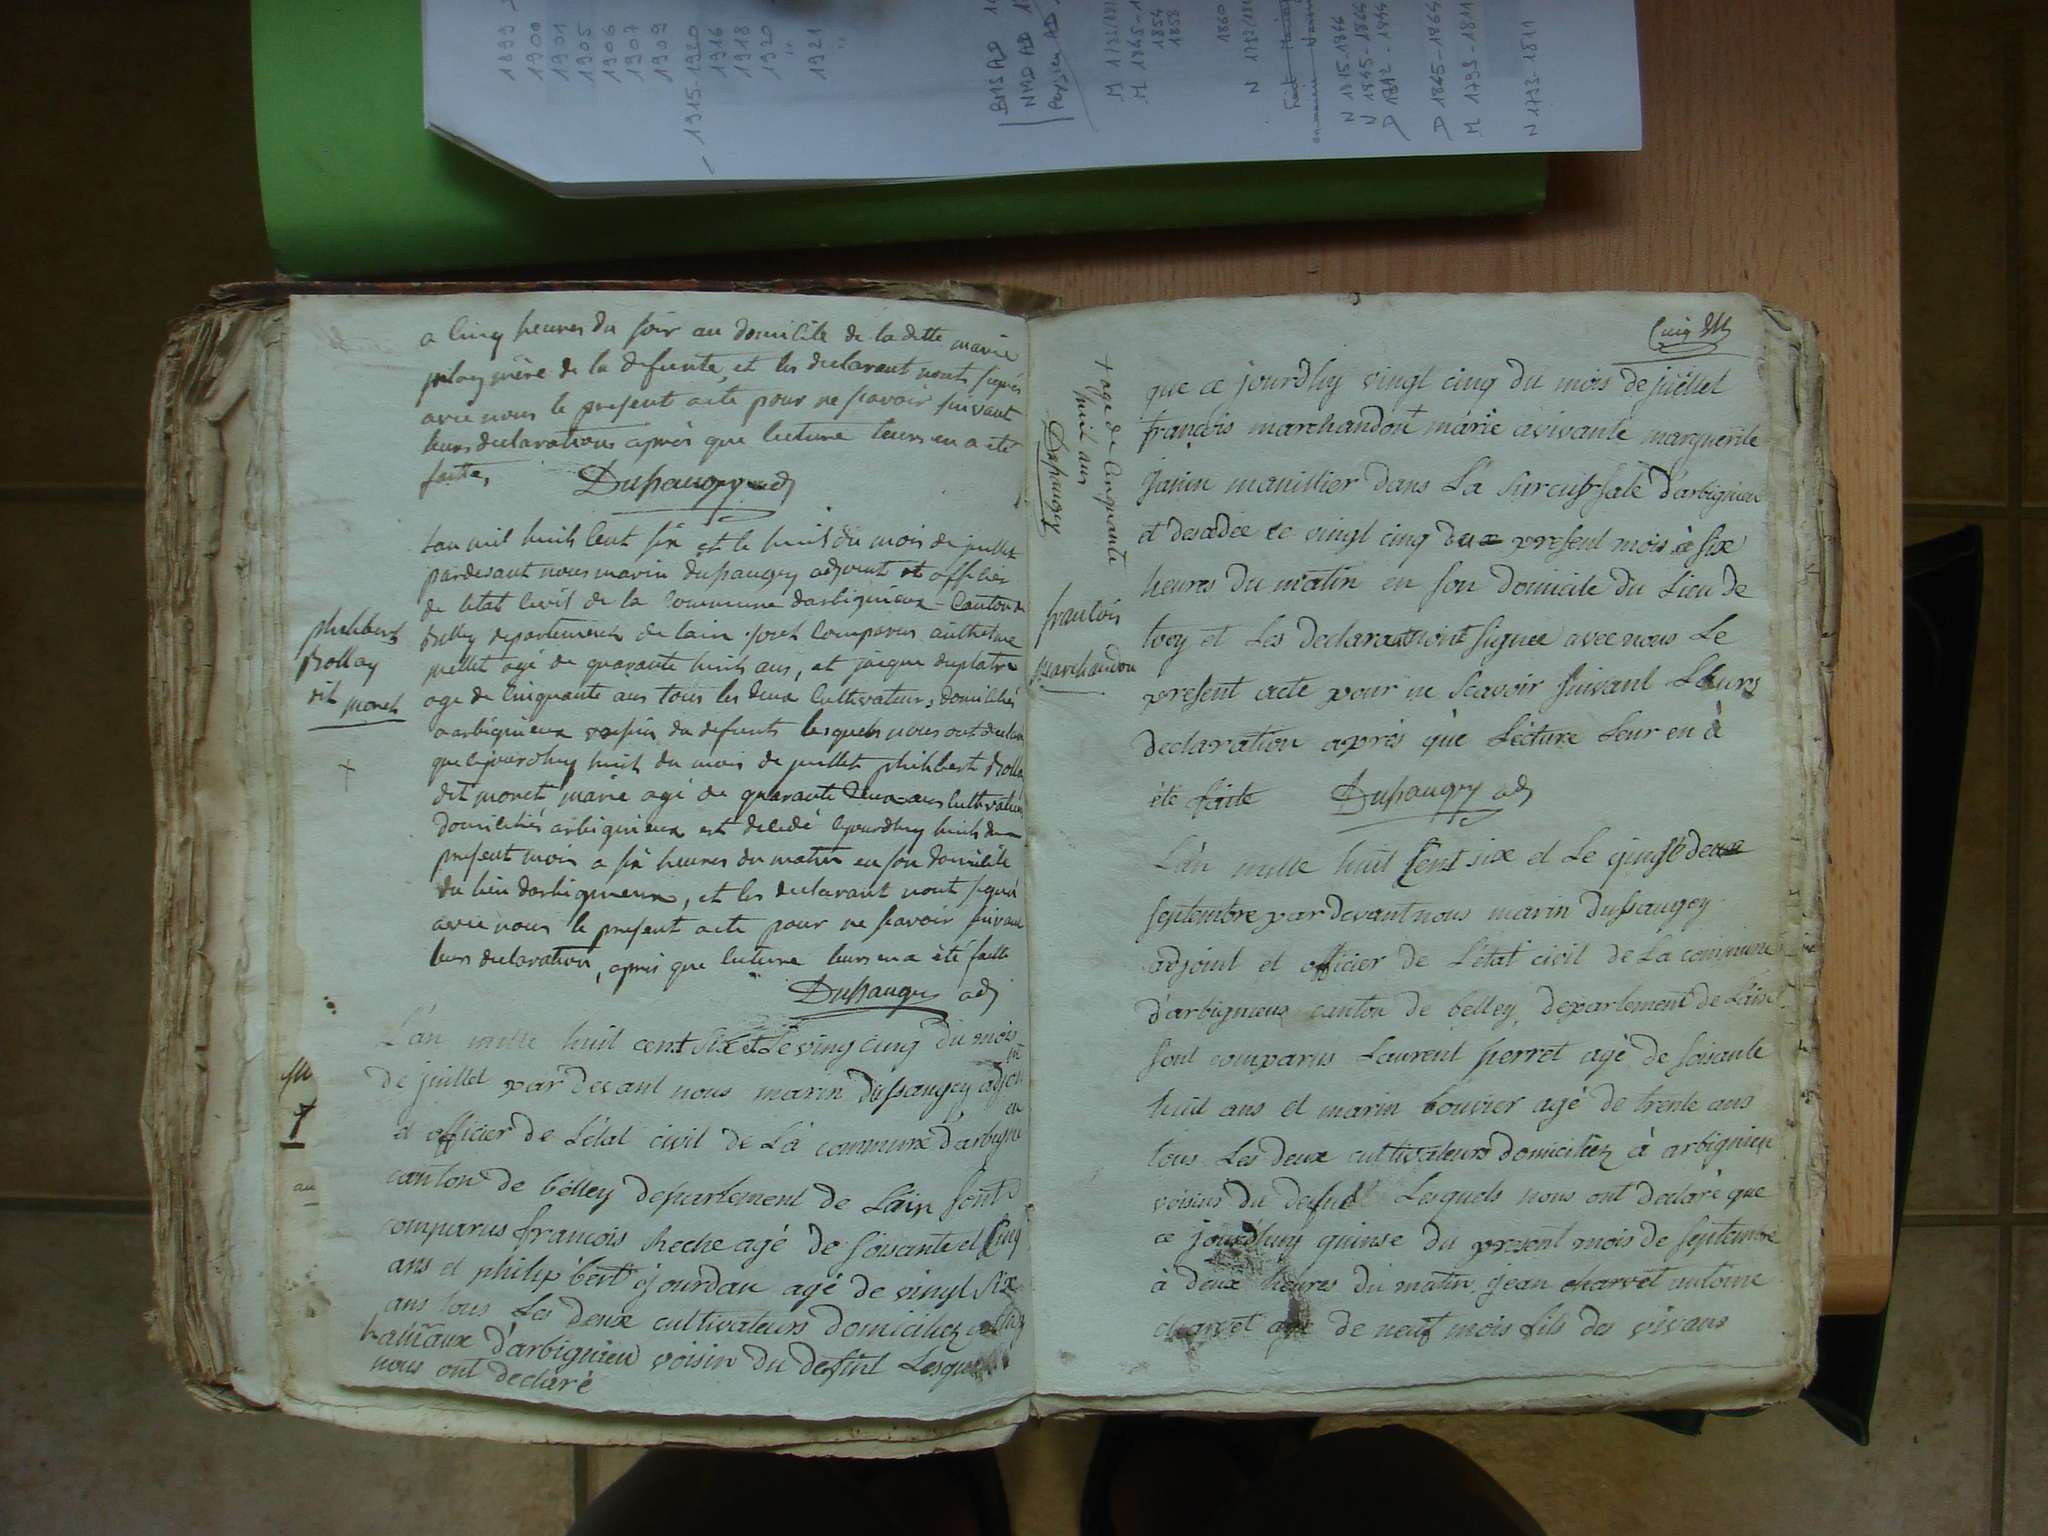 1899
1900
1901
1905
1906
1907
1909
- 1915-1920
1916
1918
1920
1921
BMS AD
NMD AD
1854
1858
1860
N 1815-1844
N 1845-1864
D 1812-1844
D 1845-1864
M 1793-1811
N 1793-1811
a cinq heures du soir au domicile de la ditte marie
piloz mère de la defunte, et les declarant nont signés
avec nous le present acte pour ne scavoir suivant
leurs declarations apres que lecture leurs en a été
faitte,
Dussaugey adj
philibert
Rollay
dit monet
lan mil huit cent six et le huit du mois de juillet
pardevant nous marin dussaugey adjoint et officier
de letat civil de la commune darbignieux canton de
Belley departement de lain sont comparus anthelme
mellet agé de quarante huit ans, et jacque duplatre
age de cinquante ans tous les deux cultivateurs, domiciliés
a arbignieux voisin du defunts lesquels nous ont declaré
que cejourdhuy huit du mois de juillet philibert Rollay
dit monet marié agé de quarante deux ans cultivateur
domiciliés arbignieux est décédé cejourdhuy huit du
present mois a six heures du matin en son domicile
du lieu darbignieux, et les declarant nont signé
avec nous le present acte pour ne scavoir suivant
leurs declaration, apres que lecture leurs en a été faitte
Dussaugey adj
L'an mille huit cent six et le ving cinq du mois
de juillet par devant nous marin dussaugey adjoint
et officier de L'état civil de La commune d'arbignieu
canton de belley departement de L'ain sont
comparus francois Reche agé de soisante et cinq
ans et philipbert jourdan agé de vingt six
ans tous Les deux cultivateurs domiciliez
hamaux d'arbignieu voisin du defunt Lesquels
nous ont declaré
+ age de cinquante
huit ans
Dussaugey
francois
Marchandon
que ce jourdhuy vingt cinq du mois de juillet
françois marchandon + marié avivante marguerite
Janin manillier dans La surcussale d'arbignieu
et decedée ce vingt cinq du present mois à six
heures du matin en son domicile du Lieu de
et Les declarant nont signee avec nous Le
present acte pour ne scavoir suivant Leurs
declaration apres que Lecture Leur en à
été faite Dussaugey adj
L'an mille huit cent six et Le quinse de
septembre par devant nous marin dussaugey
adjoint et officier de L'état civil de La commune
d'arbignieux canton de belley, departement de L'ain
sont comparus Laurent perret agé de soisante
huit ans et marin bouvier agé de trente ans
tous Les deux cultivateurs domiciliez à arbignieu
voisins du defunt Lesquels nous ont declaré que
ce jourdhuy quinse du present mois de septembre
à deux heures du matin jean charvet antoine
charvet age de neuf mois fils des vivans